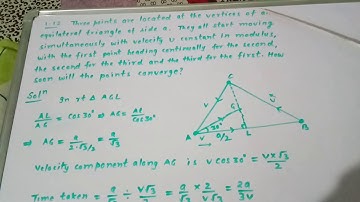 1.12 Three points are located at the vertices of an
equilateral triangle of side a. They all start moving
simultaneously with velocity v constant in modulus,
with the first point heading continually for the second,
the second for the third and the third for the first. How
soon will the points converge?
Solⁿ
In rt Δ AGL
AL/AG = cos30° ⇒ AG = AL/cos30°
⇒ AG = a/(2·√3/2) = a/√3
Velocity component along AG is v cos30° = v×√3/2
Time taken = a/√3 ÷ v√3/2 = a/√3 × 2/v√3 = 2a/3v
C
v
G
v
A
30°
a/2
L
B